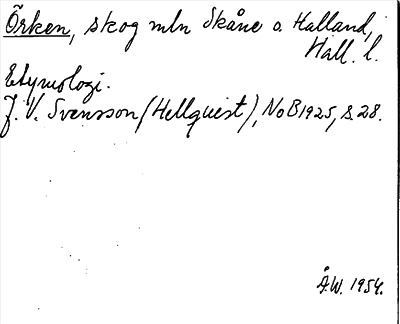 Örken, skog mln Skåne o. Halland,
Hall. l.
Etymologi.
J. V. Svensson (Hellquist), NoB 1925, s. 28.
Å.W. 1954.